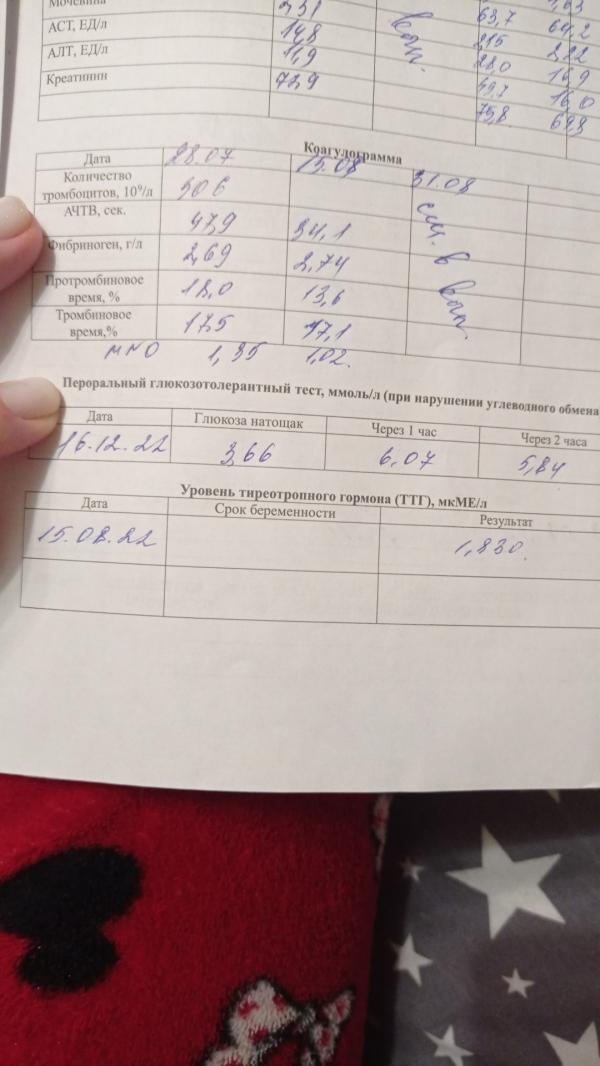 Мочевина 2,31 63,7
АСТ, ЕД/л 14,8 215 2,22
АЛТ, ЕД/л 11,9 28,0 19,9
Креатинин 72,9 16,0
75,8
Коагулограмма
Дата 28.07 15.08 31.08
Количество тромбоцитов, 10⁹/л 306 см. в вып.
АЧТВ, сек. 47,9 34,1
Фибриноген, г/л 2,69 2,74
Протромбиновое время, % 18,0 13,6
Тромбиновое время,% 17,5 17,1
МНО 1,35 1,02.
Пероральный глюкозотолерантный тест, ммоль/л (при нарушении углеводного обмена
Дата Глюкоза натощак Через 1 час Через 2 часа
16.12.22 3,66 6,07 5,84
Уровень тиреотропного гормона (ТТГ), мкМЕ/л
Дата Срок беременности Результат
15.08.22 1,830.